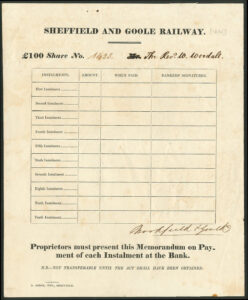 SHEFFIELD AND GOOLE RAILWAY.
£100 Share No.
INSTALMENTS. AMOUNT WHEN PAID BANKERS SIGNATURES.
First Instalment
Second Instalment
Third Instalment
Fourth Instalment
Fifth Instalment
Sixth Instalment
Seventh Instalment
Eighth Instalment
Ninth Instalment
Tenth Instalment
Proprietors must present this Memorandum on Pay-
ment of each Instalment at the Bank.
N.B.—NOT TRANSFERABLE UNTIL THE ACT SHALL HAVE BEEN OBTAINED.